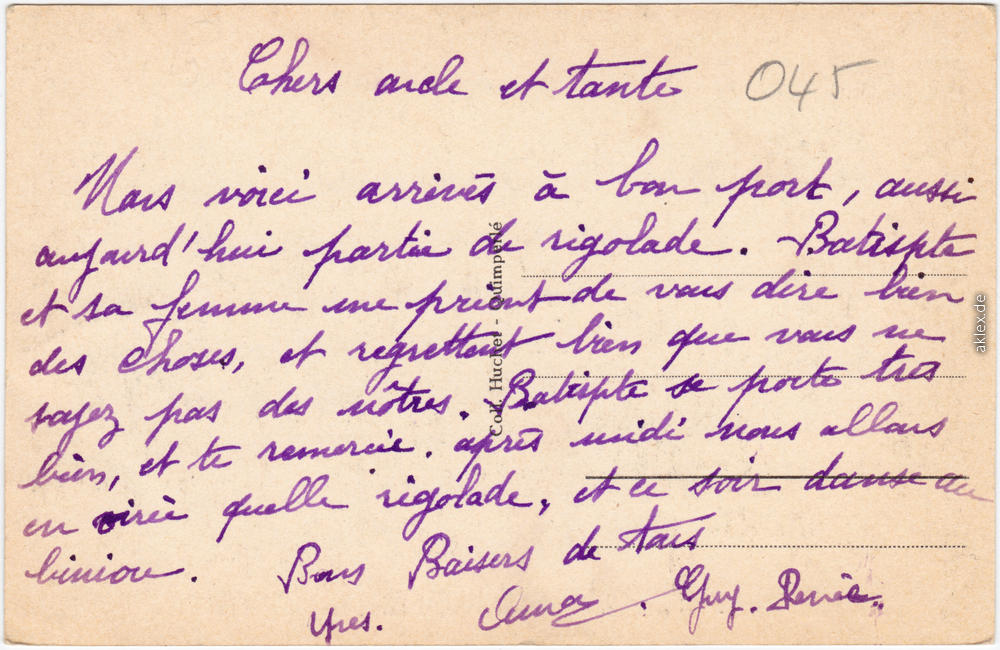 Chers oncle et tante
045
Nous voici arrivés à bon port, aussi
aujourd'hui partie de rigolade. Batispte
et sa femme me prient de vous dire bien
des choses, et regrettent bien que vous ne
soyez pas des nôtres. Batispte se porte tres
bien, et te remercie. après midi nous allons
en virée quelle rigolade, et ce soir danse au
biniou. Bons Baisers de tous
Yves. Anna. Guy. Renée.
Coll. Hucher - Quimperlé
aklex.de